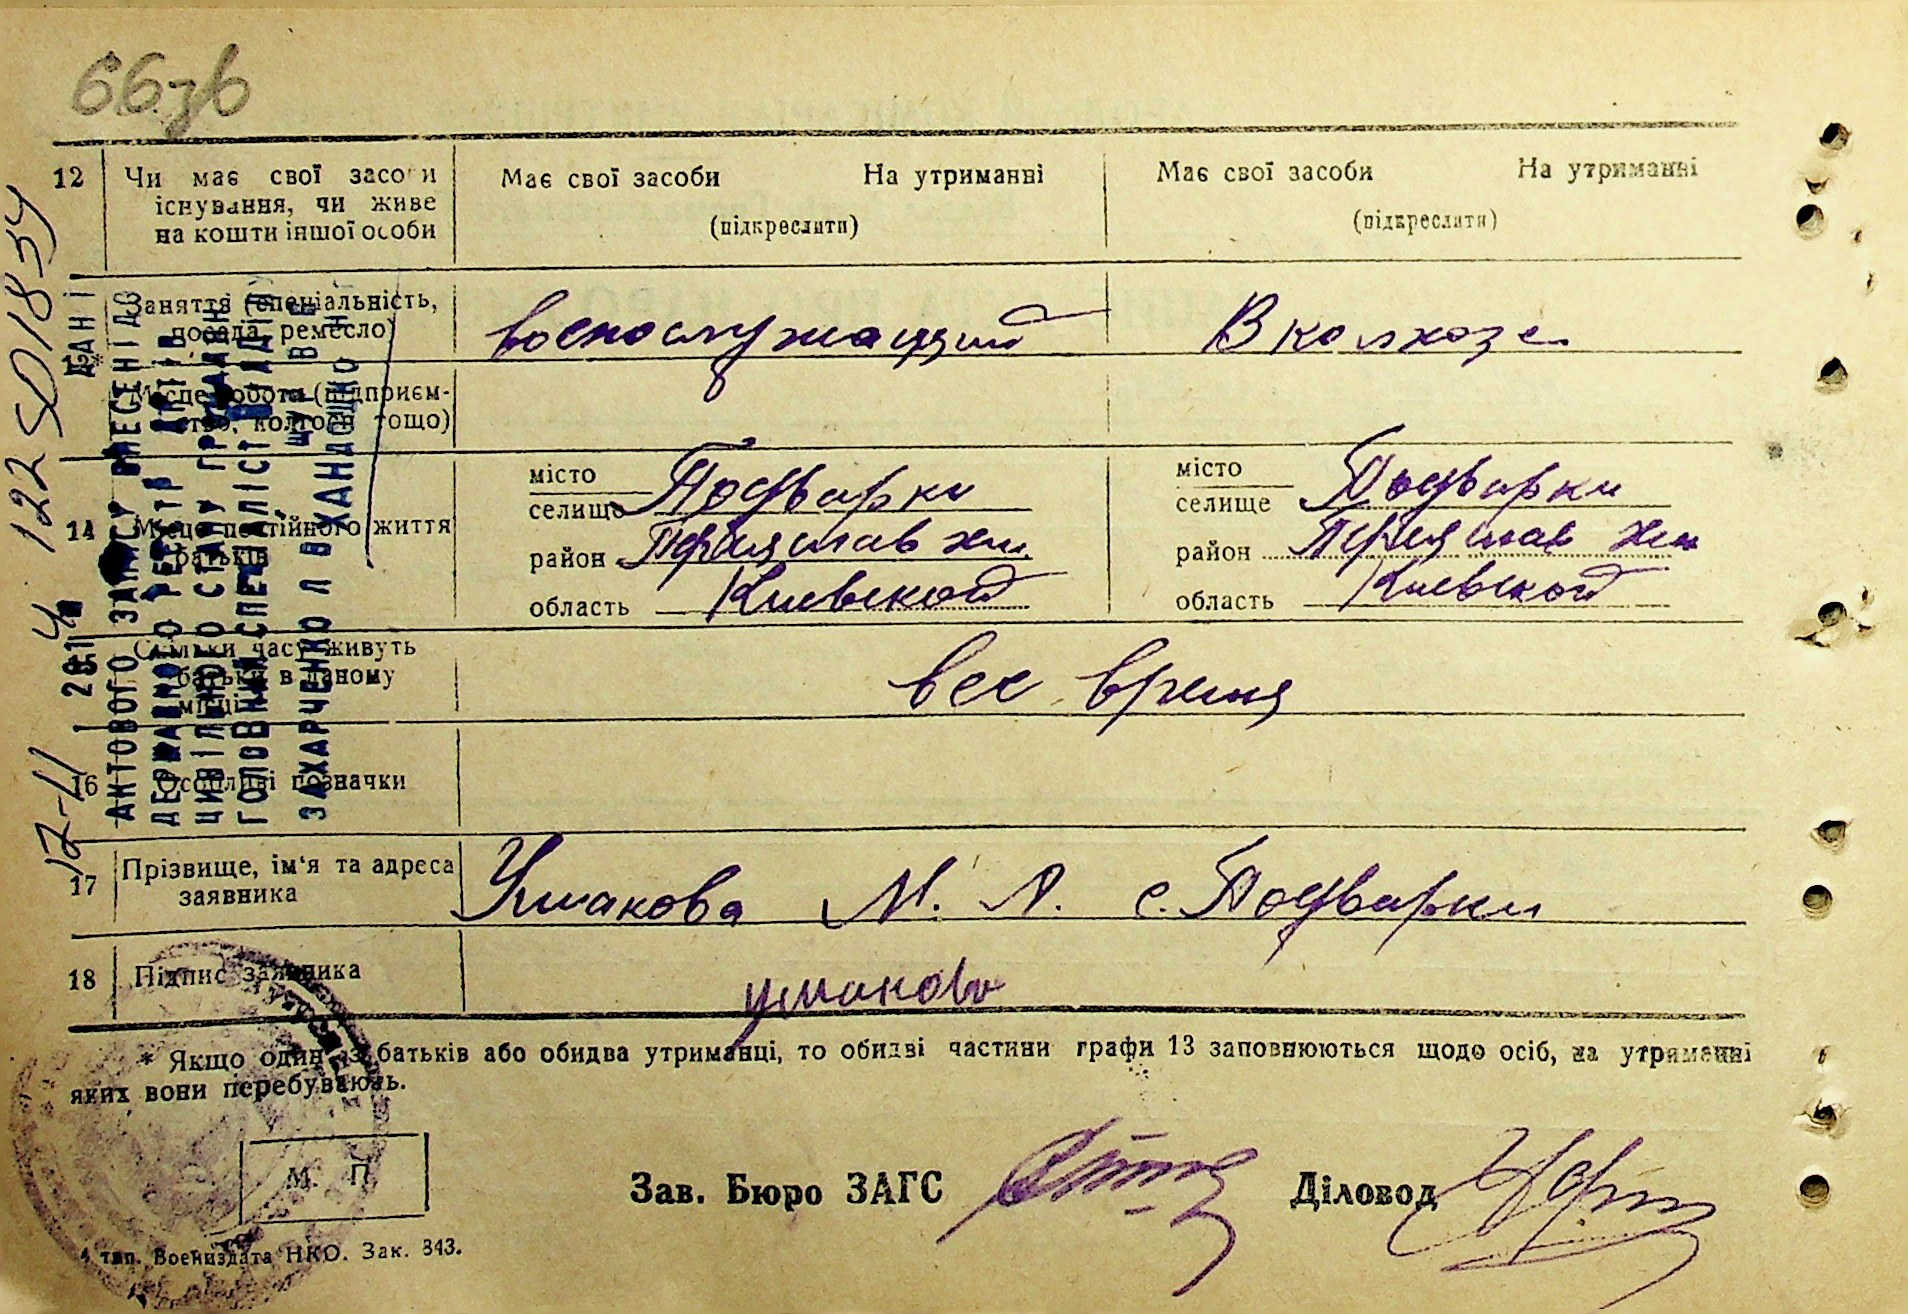 66зв
12 Чи має свої засоби Має свої засоби На утриманні Має свої засоби На утриманні
існування, чи живе
на кошти іншої особи (підкреслити) (підкреслити)
Заняття (спеціальність,
посада, ремесло) военослужащий В колхозе
13*
Місце роботи (підприєм-
ство, колгосп тощо)
14 Місце постійного життя
батьків
місто
селище Подварки
район Переяслав Хм
область Киевской
місто
селище Подварки
район Переяслав Хм
область Киевской
15 Скільки часу живуть
батьки в даному
місці все время
16 Особливі позначки
17 Прізвище, ім'я та адреса
заявника Ушакова М. А. с. Подварки
18 Підпис заявника ушакова
* Якщо один з батьків або обидва утриманці, то обидві частини графи 13 заповнюються щодо осіб, на утриманні
яких вони перебувають.
М. П.
Зав. Бюро ЗАГС Діловод
4 тип. Воениздата НКО. Зак. 843.
ДАНІ
АКТОВОГО ЗАПИСУ ВНЕСЕНІ ДО
ДЕРЖАВНОГО РЕЄСТР
ЦИВІЛЬНОГО СТАНУ ГРОМАДЯН
ГОЛОВНИЙ СПЕЦІАЛІСТ
ЗАХАРЧЕНКО Л В